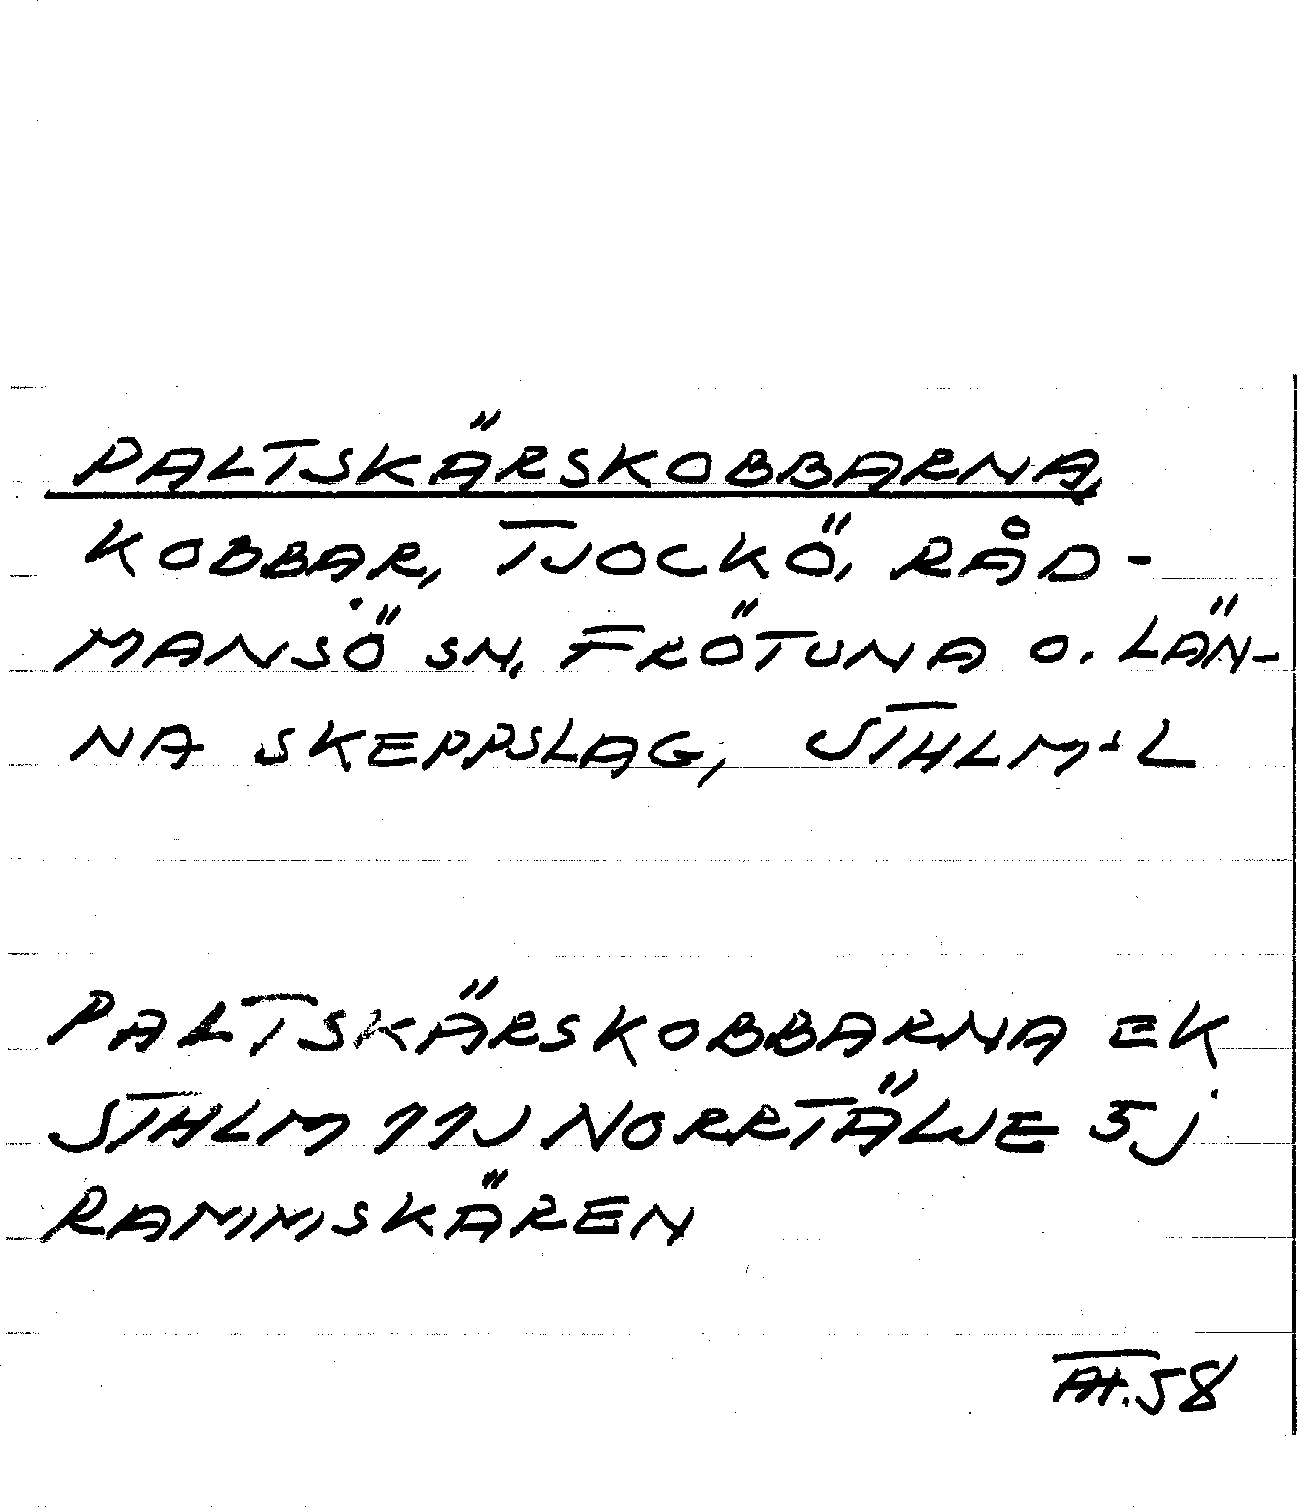 PALTSKÄRSKOBBARNA,
KOBBAR, TJOCKÖ, RÅD-
MANSÖ SN, FRÖTUNA O. LÄN-
NA SKEPPSLAG, STHLM-S L
PALTSKÄRSKOBBARNA EK
STHLM 11J NORRTÄLJE 5j
RAMMSKÄREN
58